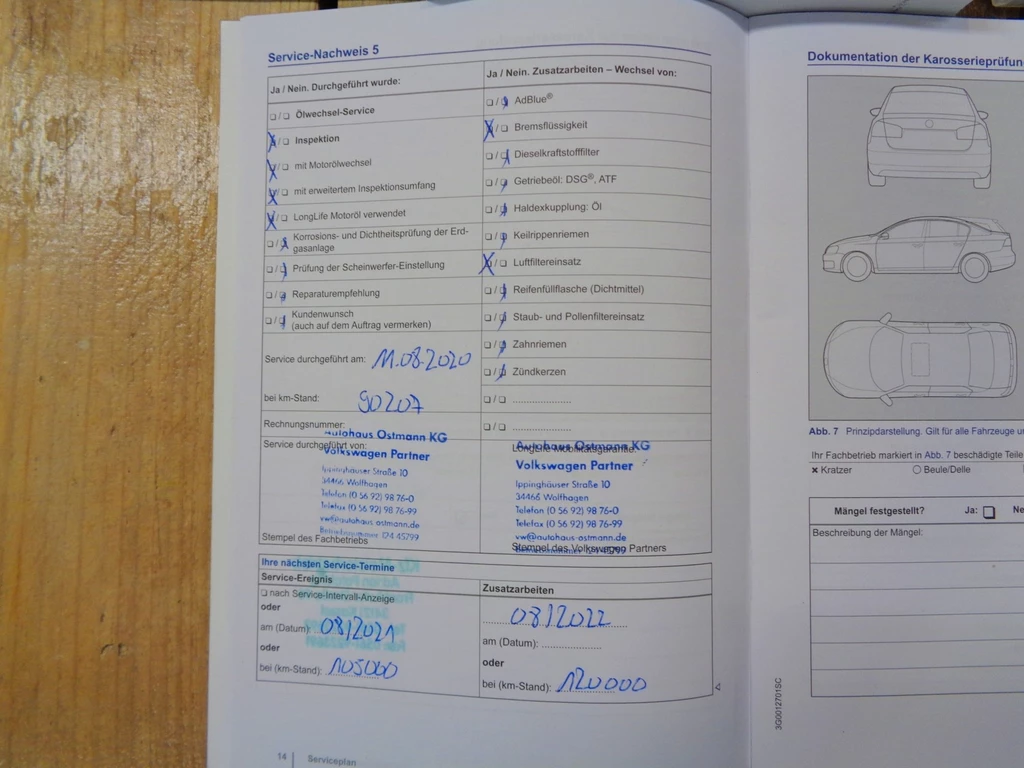 Service-Nachweis 5
Ja / Nein. Durchgeführt wurde:
❑/❑ Ölwechsel-Service
X/❑ Inspektion
X/❑ mit Motorölwechsel
X/❑ mit erweitertem Inspektionsumfang
X/❑ LongLife Motoröl verwendet
❑/X Korrosions- und Dichtheitsprüfung der Erd-
gasanlage
❑/❑ Prüfung der Scheinwerfer-Einstellung
❑/❑ Reparaturempfehlung
❑/❑ Kundenwunsch
(auch auf dem Auftrag vermerken)
Service durchgeführt am: 11.08.2020
bei km-Stand: 90207
Rechnungsnummer:
Service durchgeführt von:
Autohaus Ostmann KG
Volkswagen Partner
Ippinghäuser Straße 10
34466 Wolfhagen
Telefon (0 56 92) 98 76-0
Telefax (0 56 92) 98 76-99
vw@autohaus-ostmann.de
Betriebsnummer 124 45799
Stempel des Fachbetriebs
Ja / Nein. Zusatzarbeiten – Wechsel von:
❑/❑ AdBlue®
X/❑ Bremsflüssigkeit
❑/❑ Dieselkraftstofffilter
❑/❑ Getriebeöl: DSG®, ATF
❑/❑ Haldexkupplung: Öl
❑/❑ Keilrippenriemen
X/❑ Luftfiltereinsatz
❑/❑ Reifenfüllflasche (Dichtmittel)
❑/❑ Staub- und Pollenfiltereinsatz
❑/❑ Zahnriemen
❑/❑ Zündkerzen
❑/❑ ......................
❑/❑ ......................
LongLife Mobilitätsgarantie
Autohaus Ostmann KG
Volkswagen Partner
Ippinghäuser Straße 10
34466 Wolfhagen
Telefon (0 56 92) 98 76-0
Telefax (0 56 92) 98 76-99
vw@autohaus-ostmann.de
Stempel des Volkswagen Partners
Ihre nächsten Service-Termine
Service-Ereignis
❑ nach Service-Intervall-Anzeige
oder
am (Datum): 08/2021
oder
bei (km-Stand): 105000
Zusatzarbeiten
08/2022
am (Datum): ......................
oder
bei (km-Stand): 120000
14 Serviceplan
Dokumentation der Karosserieprüfun
Abb. 7 Prinzipdarstellung. Gilt für alle Fahrzeuge u
Ihr Fachbetrieb markiert in Abb. 7 beschädigte Teile
× Kratzer ○ Beule/Delle
Mängel festgestellt? Ja: ❑ Ne
Beschreibung der Mängel:
3G0012701SC